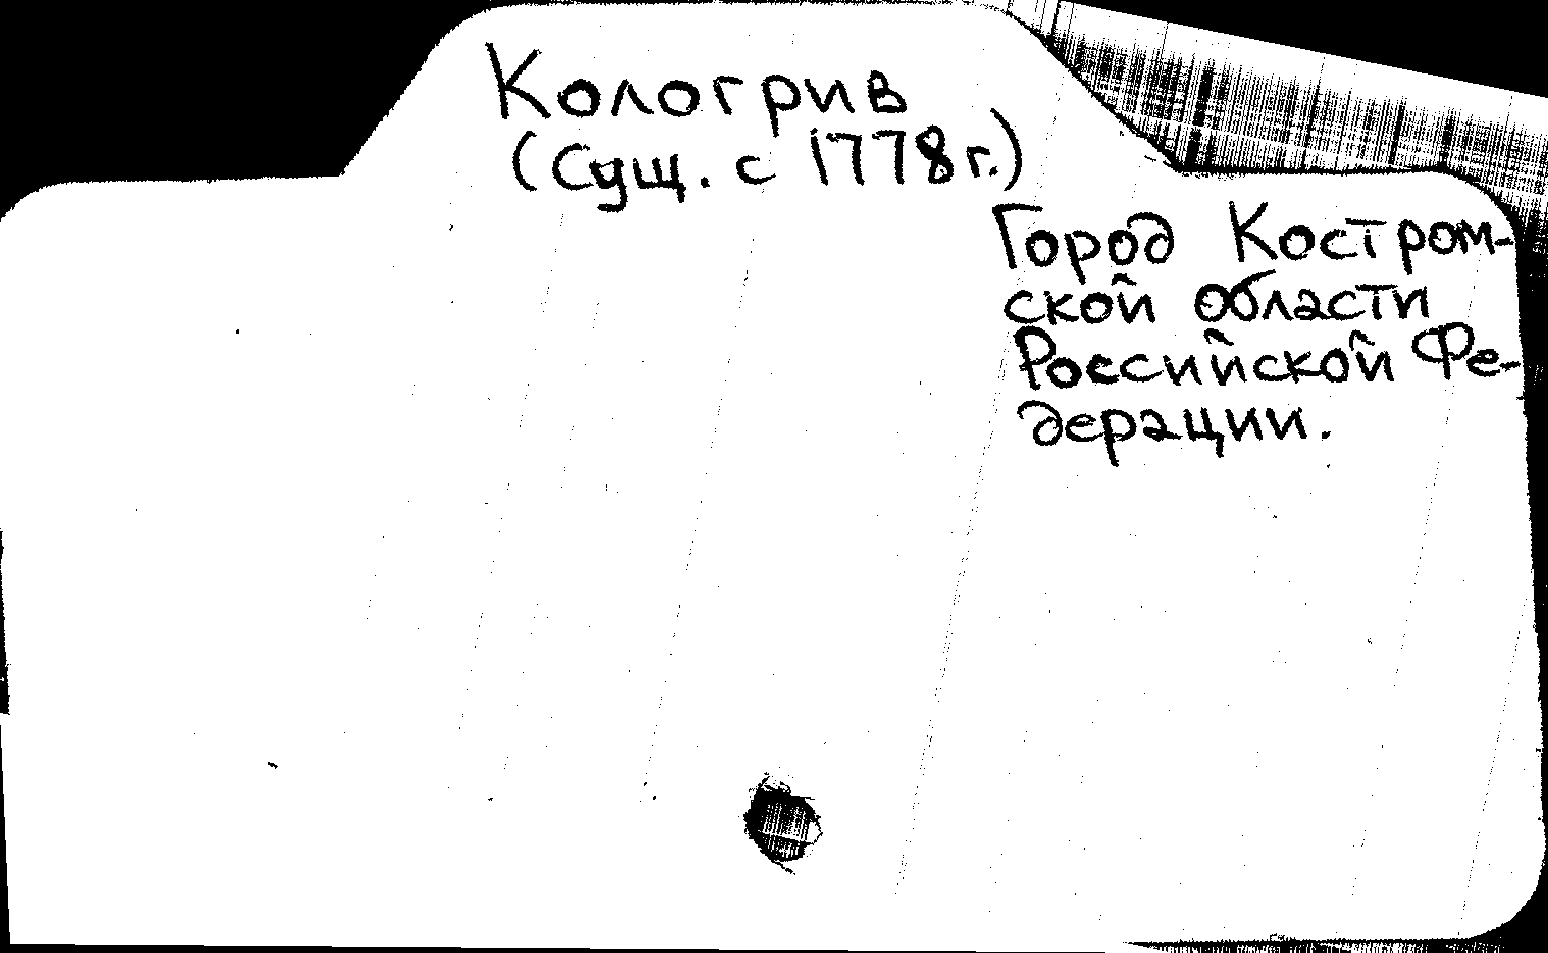 Кологрив
(сущ. с 1778 г.)
Город Костром-
ской области
Российской Фе-
дерации.